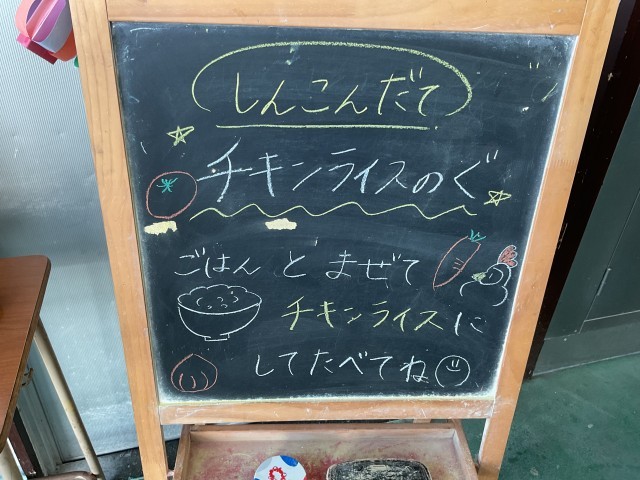 しんこんだて
チキンライスのぐ
ごはんとまぜて
チキンライスに
してたべてね